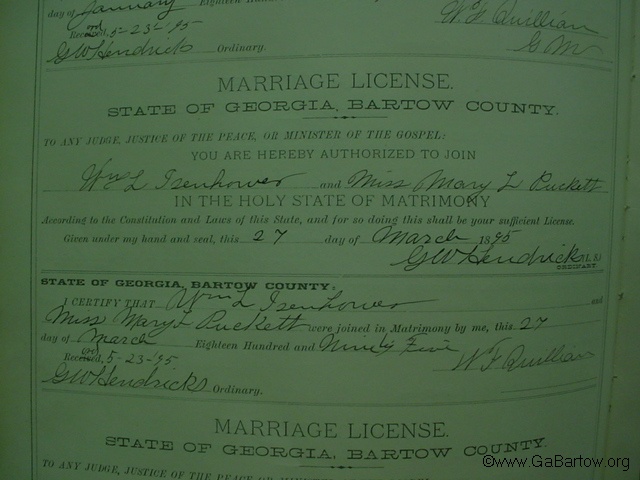 day of January Eighteen Hund
W. F. Quillian
Rec ord ed, 5-23-'95
G. M
GW Hendricks Ordinary.
MARRIAGE LICENSE.
STATE OF GEORGIA, BARTOW COUNTY.
TO ANY JUDGE, JUSTICE OF THE PEACE, OR MINISTER OF THE GOSPEL:
YOU ARE HEREBY AUTHORIZED TO JOIN
Wm L Isenhower and Miss Mary L Puckett
IN THE HOLY STATE OF MATRIMONY
According to the Constitution and Laws of this State, and for so doing this shall be your sufficient License.
Given under my hand and seal, this 27 day of March 1895
GW Hendricks (L. S.)
ORDINARY.
STATE OF GEORGIA, BARTOW COUNTY:
I CERTIFY THAT Wm L Isenhower and
Miss Mary L Puckett were joined in Matrimony by me, this 27
day of March Eighteen Hundred and Ninety Five
W F Quillian
Rec ord ed, 5-23-'95
GW Hendricks Ordinary.
MARRIAGE LICENSE.
STATE OF GEORGIA, BARTOW COUNTY.
TO ANY JUDGE, JUSTICE OF THE PEACE OR MINISTER OF THE GOSPEL
©www.GaBartow.org